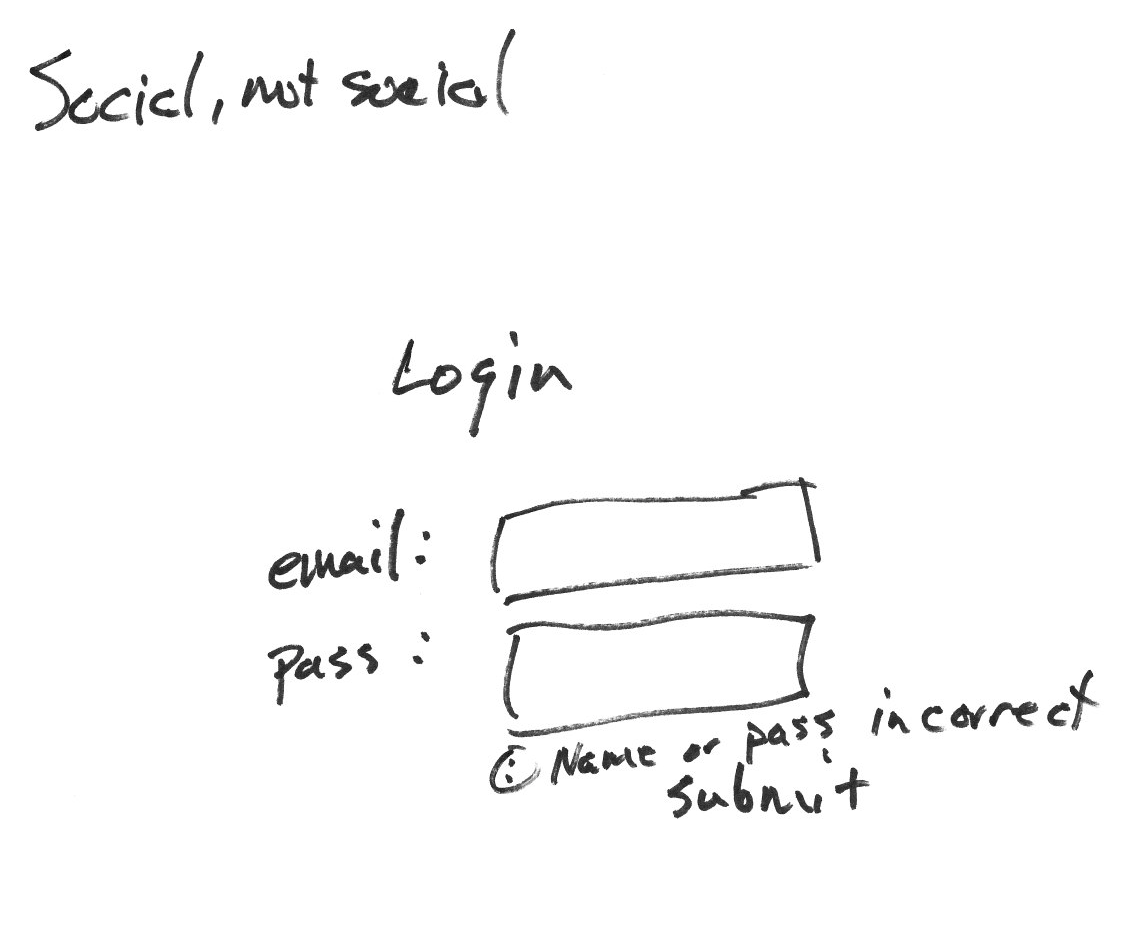 Social, not social
Login
email:
pass:
Name or pass incorrect
submit